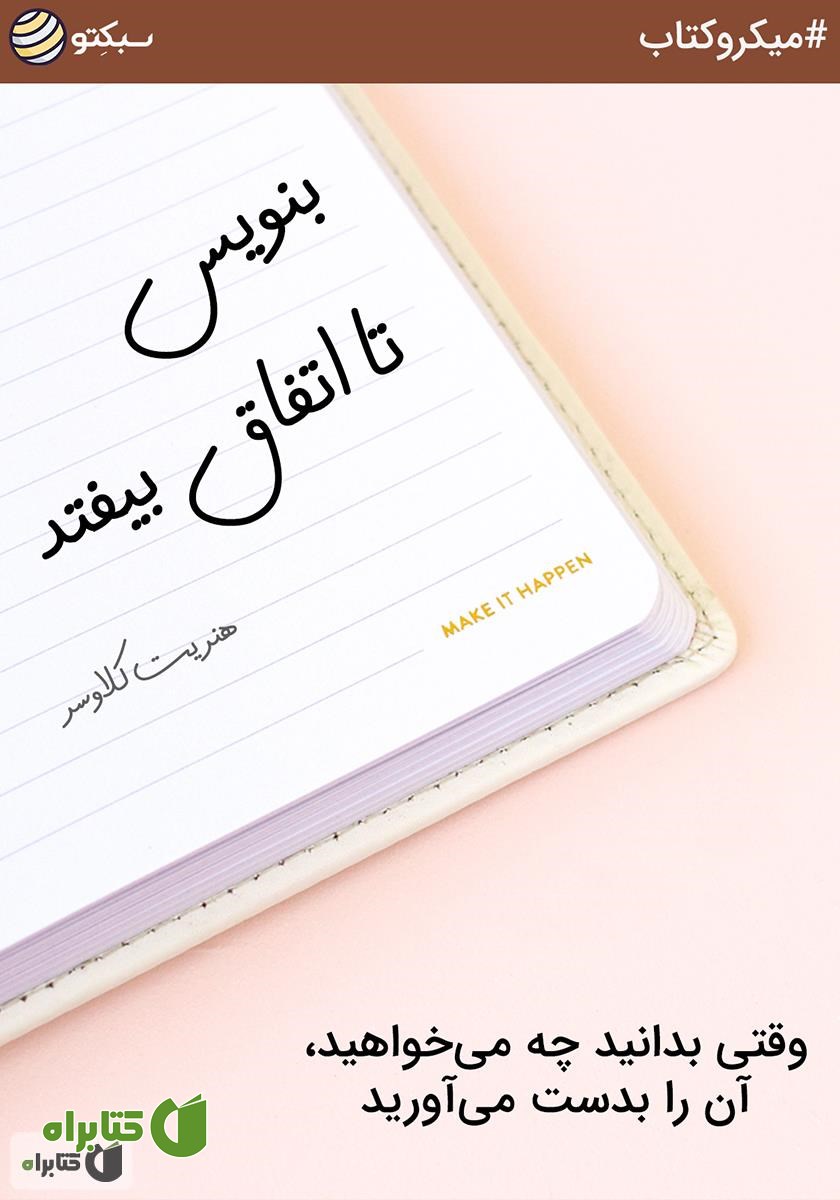 #میکروکتاب
سبکِتو
بنویس
تا اتفاق بیفتد
MAKE IT HAPPEN
هنریت کلاوسر
وقتی بدانید چه می‌خواهید،
آن را بدست می‌آورید
کتابراه
کتابراه